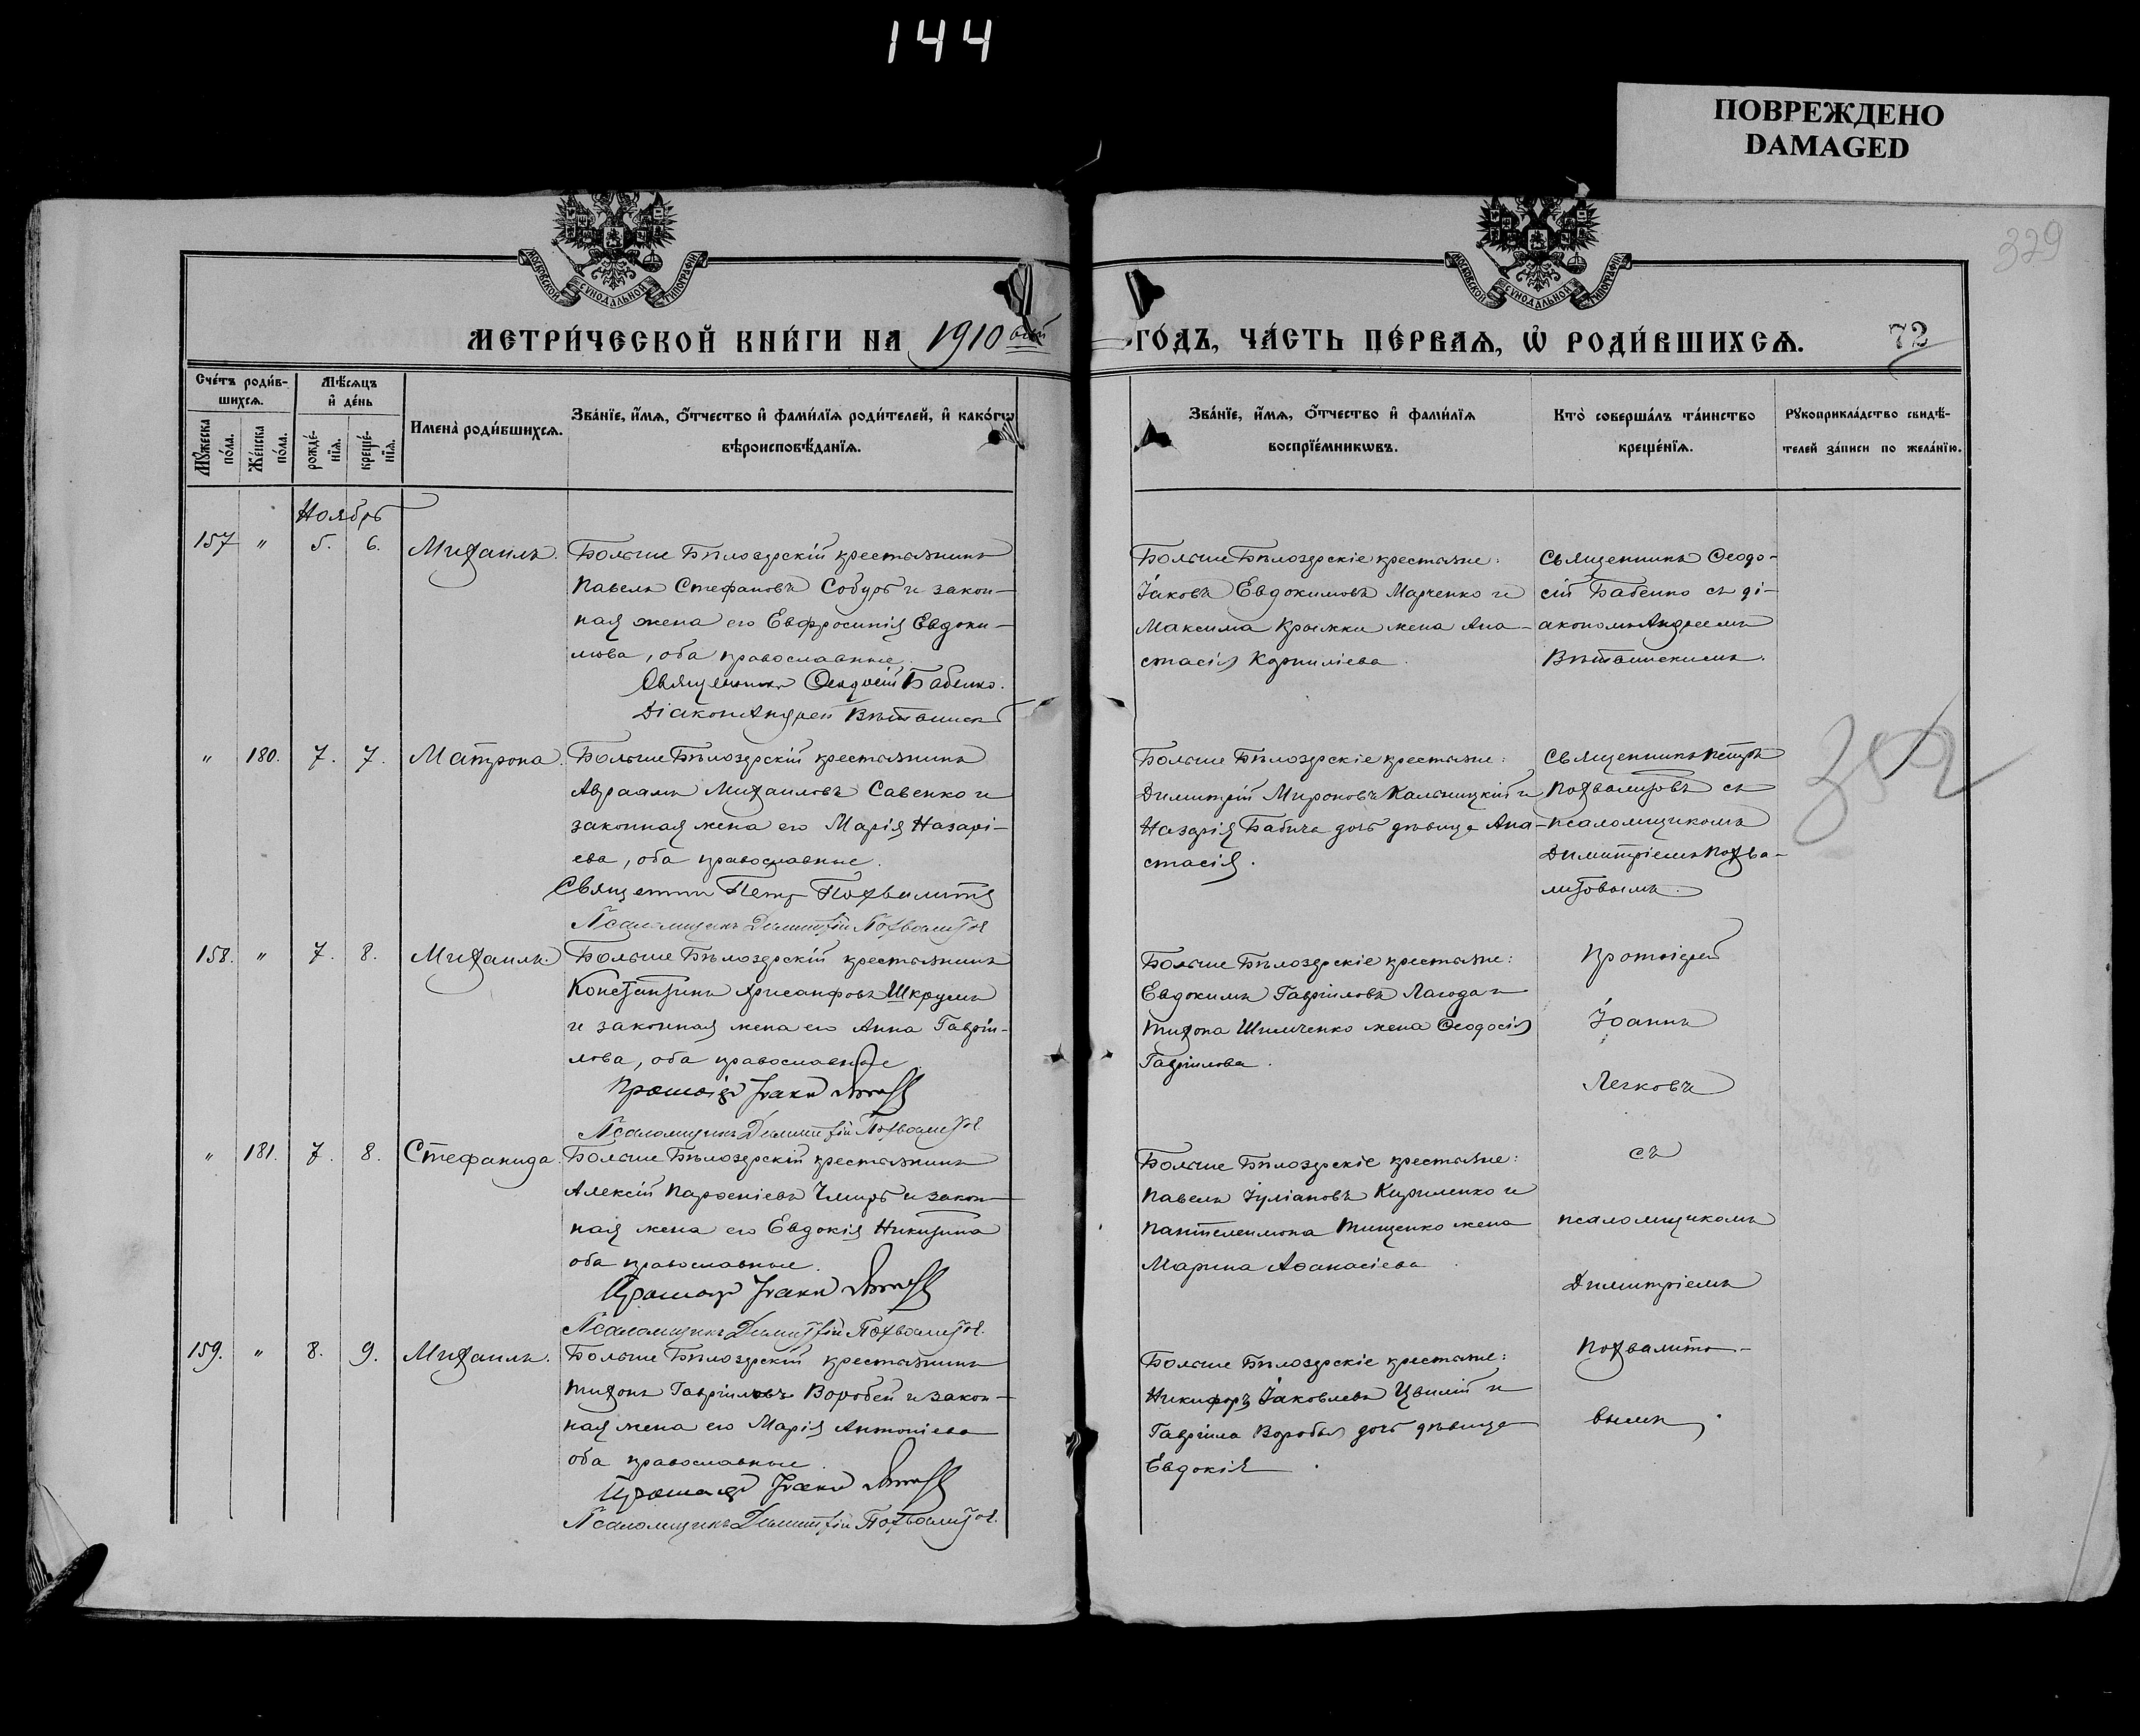 144
ПОВРЕЖДЕНО
DAMAGED
329
МОСКОВСКОЙ СѴНОДАЛЬНОЙ ТИПОГРАФІИ
МОСКОВСКОЙ СѴНОДАЛЬНОЙ ТИПОГРАФІИ
МЕТРИ́ЧЕСКОЙ КНИ́ГИ НА 1910 ый
ГО́ДЪ, ЧА́СТЬ ПЕ́РВАѦ, Ѡ҆ РОДИ́ВШИХСѦ. 72
Сче́тъ роди́в-
шихсѧ.
Мꙋ́жеска по́ла.
Же́нска по́ла.
Мѣ́сѧцъ
и҆ де́нь
рожде́-
нїѧ.
креще́-
нїѧ.
Имена̀ роди́вшихсѧ.
Зва́нїе, и҆́мѧ, ѻ҆́тчество и҆ фами́лїѧ роди́телей, и҆ како́гѡ
вѣроисповѣ́данїѧ.
Зва́нїе, и҆́мѧ, ѻ҆́тчество и҆ фами́лїѧ
воспрїе́мникѡвъ.
Кто̀ соверша́лъ та́инство
креще́нїѧ.
Рꙋкоприкла́дство свидѣ́-
телей за́писи по жела́нїю.
Ноябрь
157 " 5. 6. Михаилъ. Больше Бѣлозерскій крестьянинъ
Павелъ Стефановъ Собцов и закон-
ная жена его Евфросинія Евдоки-
мова, оба православные.
Священникъ Ѳеодосій Бабенко.
Діаконъ Андрей
Больше Бѣлозерскіе крестьяне:
Іаковъ Евдокимовъ Марченко и
Максима Крыжки жена Ана-
стасія Корниліева.
Священникъ Ѳеодо-
сій Бабенко съ ді-
акономъ Андреемъ
" 180. 7. 7. Матрона. Больше Бѣлозерскій крестьянинъ
Авраамъ Михаиловъ Савенко и
законная жена его Марія Назарі-
ева, оба православные.
Священник Петр Похвалитов
Псаломщикъ Димитрій Похвалитов
Больше Бѣлозерскіе крестьяне:
Димитрій Мироновъ Кальницкій и
Назарія Бабича дочь дѣвица Ана-
стасія.
Священникъ Петръ
Похвалитовъ съ
псаломщикомъ
Димитріемъ Похва-
литовымъ.
352
158. " 7. 8. Михаилъ. Больше Бѣлозерскій крестьянинъ
Константинъ Хрисанфовъ Шкрумъ
и законная жена его Анна Гаврiи-
лова, оба православные
Протоіер Іоанн
Псаломщикъ Димитрій Похвалитов
Больше Бѣлозерскіе крестьяне:
Евдокимъ Гавріиловъ Лагода и
Тихона Шимченко жена Ѳеодосія
Гавріилова.
Протоіерей
Іоаннъ
Легковъ
съ
псаломщикомъ
Димитріемъ
Похвалито-
вымъ.
" 181. 7. 8. Стефанида. Больше Бѣлозерскій крестьянинъ
Алексій Парѳеніевъ Чмирь и закон-
ная жена его Евдокія Никитина
оба православные.
Протоіер Іоанн
Псаломщикъ Димитрій Похвалитов.
Больше Бѣлозерскіе крестьяне:
Павелъ Іуліановъ Кириленко и
Пантелеимона Тищенко жена
Марина Аѳанасіева.
159. " 8. 9. Михаилъ. Больше Бѣлозерскій крестьянинъ
Тихонъ Гавріиловъ Воробей и закон-
ная жена его Марія Антоніева
оба православные.
Протоіер Іоанн
Псаломщикъ Димитрій Похвалитов.
Больше Бѣлозерскіе крестьяне:
Никифоръ Іаковлевъ Цвилій и
Гавріила Воробья дочь дѣвица
Евдокія.